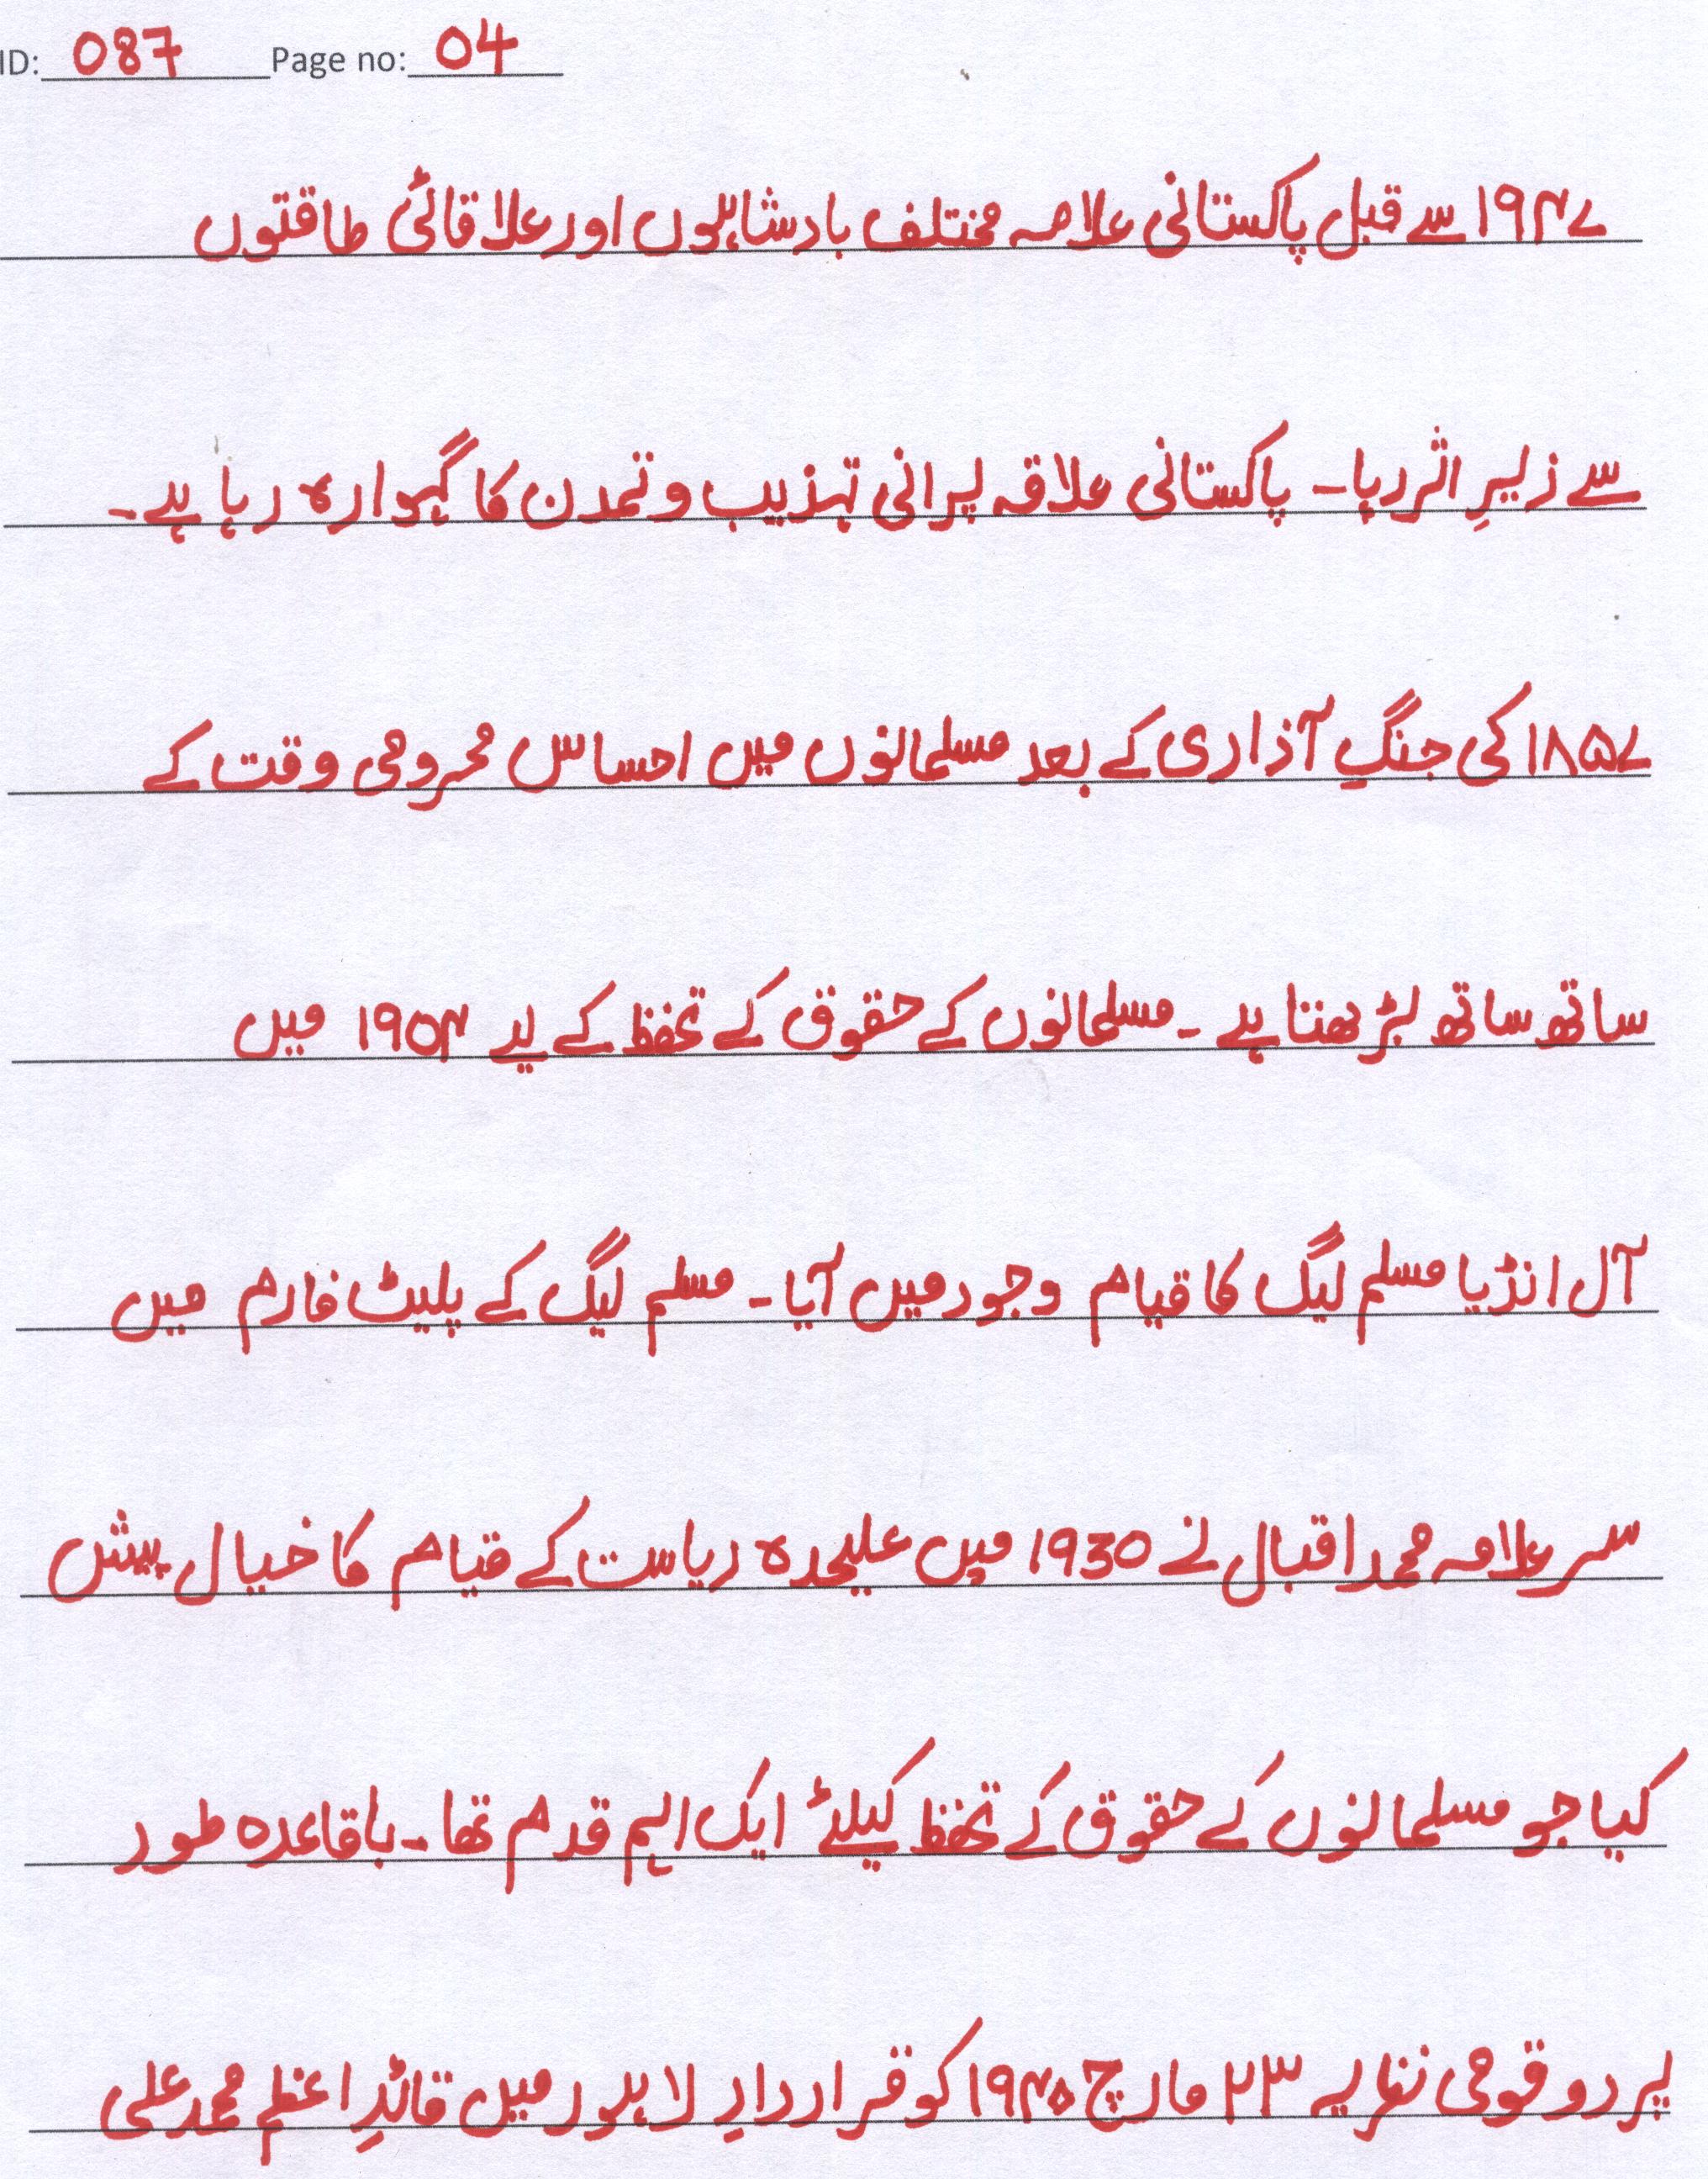 ID: 087 Page no: 04
۱۹۴۷ سے قبل پاکستانی علامہ مختلف بادشاہوں اور علاقائی طاقتوں
سے زیرِ اثر رہا۔ پاکستانی علاقہ پرانی تہذیب و تمدن کا گہوارہ رہا ہے۔
۱۸۵۷ کی جنگِ آذاری کے بعد مسلمانوں میں احساس محرومی وقت کے
ساتھ ساتھ بڑھتا ہے۔ مسلمانوں کے حقوق کے تحفظ کے لیے ۱۹۰۴ میں
آل انڈیا مسلم لیگ کا قیام وجود میں آیا۔ مسلم لیگ کے پلیٹ فارم میں
سر علامہ محمد اقبال نے 1930 میں علیحدہ ریاست کے قیام کا خیال پیش
کیا جو مسلمانوں کے حقوق کے تحفظ کیلئے ایک اہم قدم تھا۔ باقاعدہ طور
پر دو قومی نظریہ ۲۳ مارچ ۱۹۴۰ کو قراردادِ لاہور میں قائدِ اعظم محمد علی